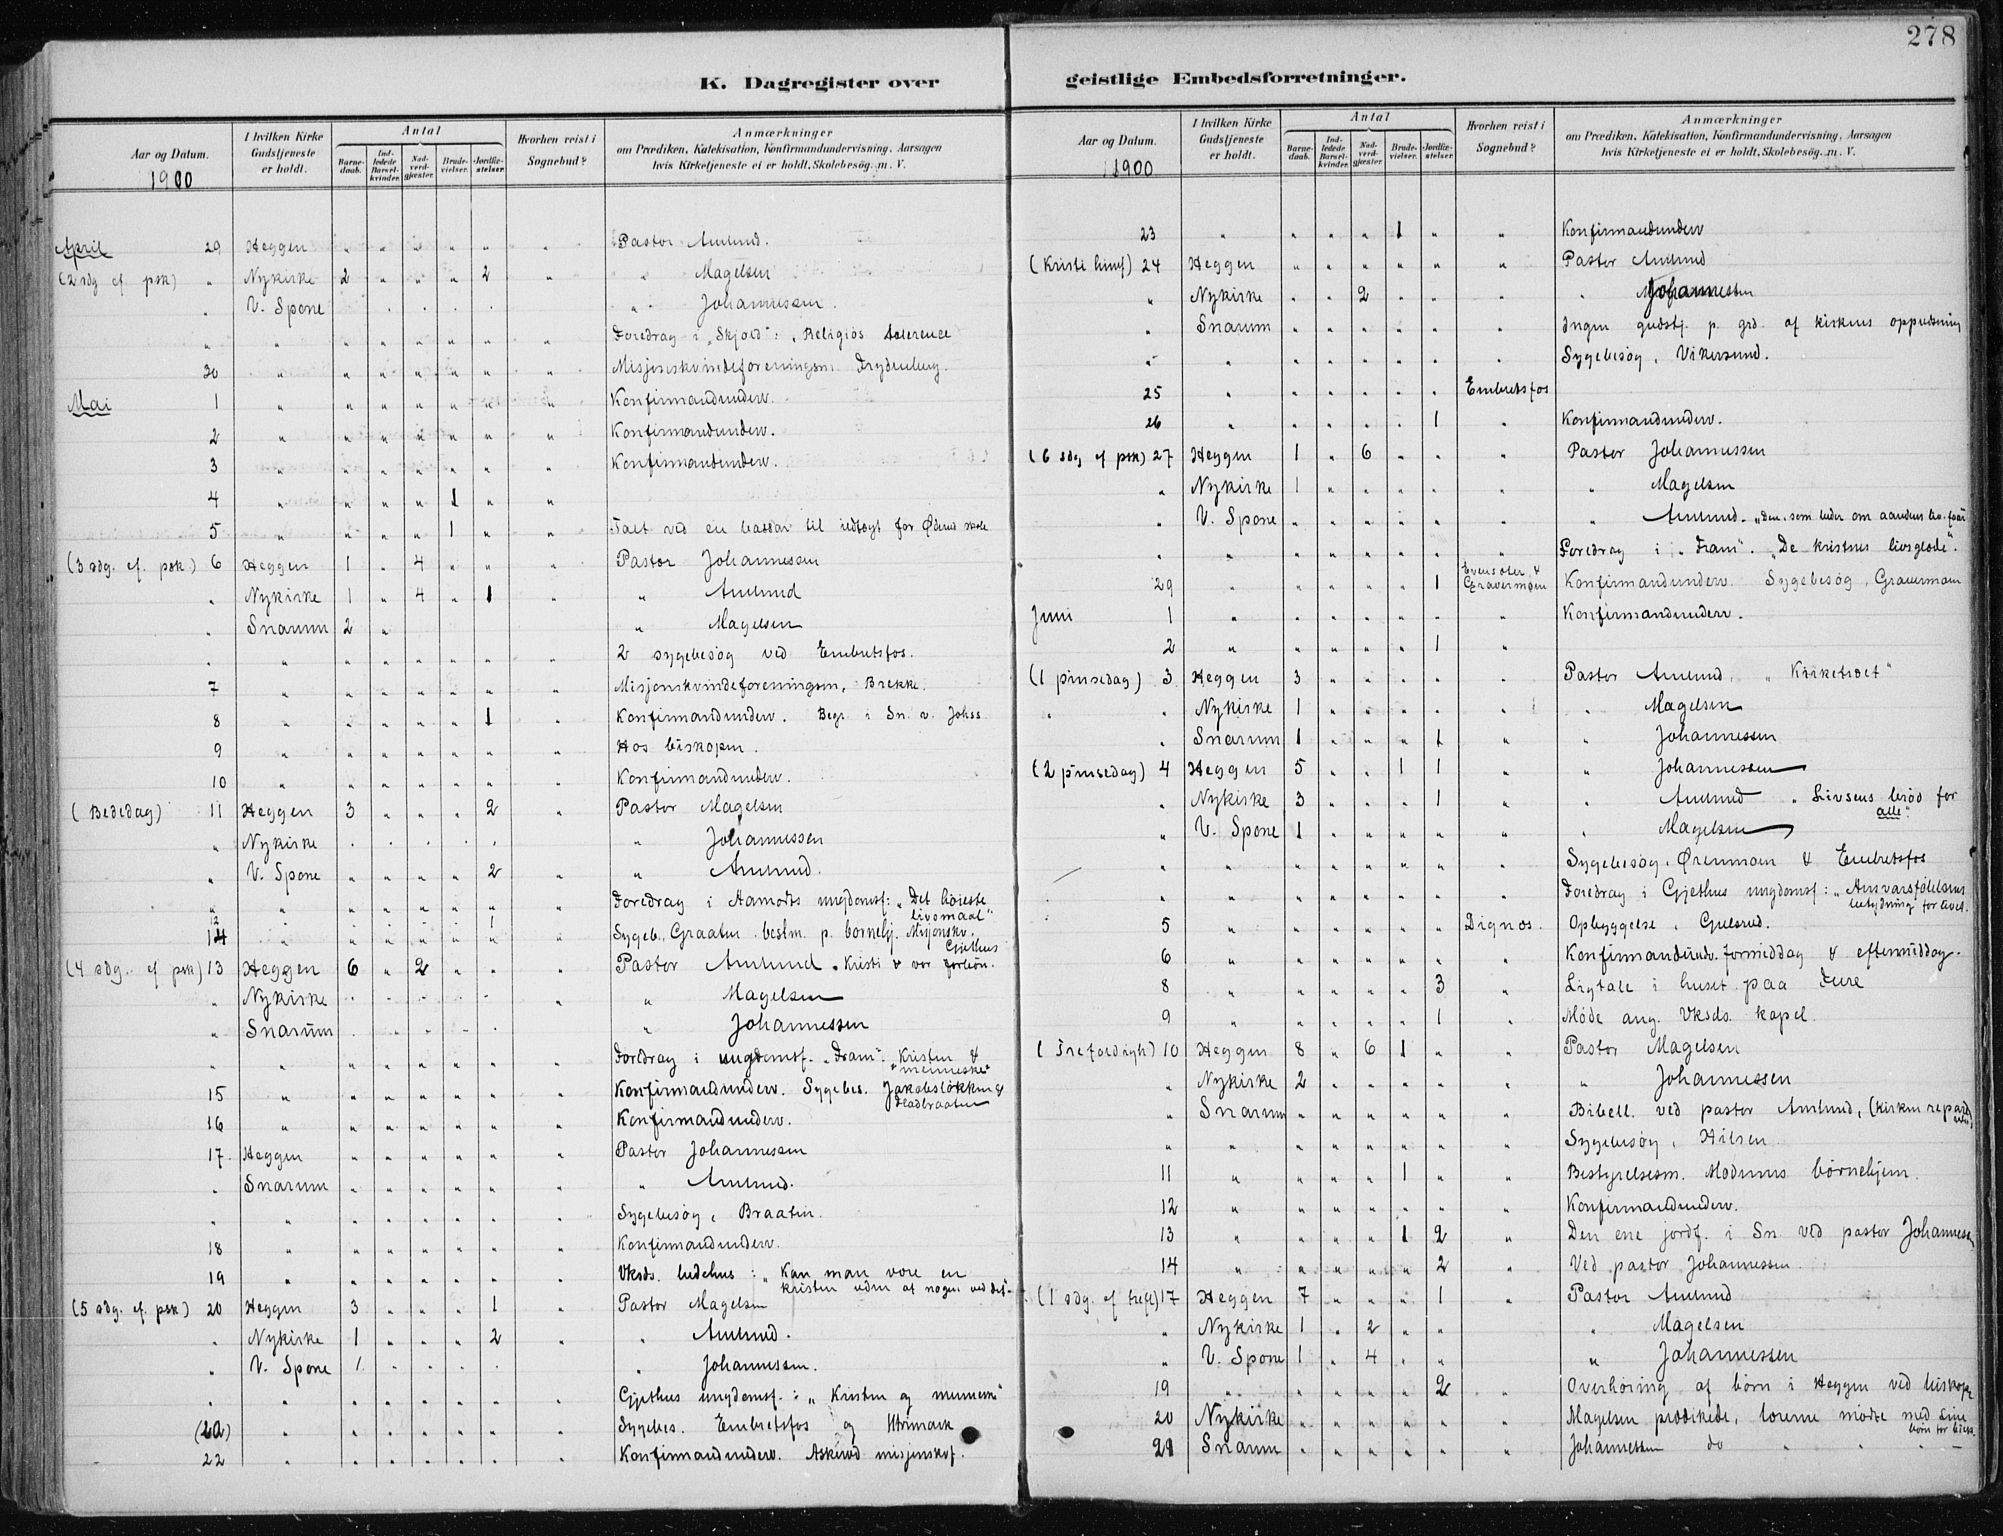 278
K. Dagregister over
geistlige Embedsforretninger.
Aar og Datum.
1900
I hvilken Kirke Gudstjeneste er holdt.
Antal
Barnedaab.
Indledede Barselkvinder.
Nadverdgjæster.
Brudevielser.
Jordfæstelser.
Hvorhen reist i Sognebud?
Anmærkninger
om Prædiken, Katekisation, Konfirmandundervisning, Aarsagen
hvis Kirketjeneste ei er holdt, Skolebesøg m. V.
April 29 Heggen " " " " " " Pastor Amlund.
(2 sdg ef. psk) " Nykirke 2 " " " 2 " " Magelsen
" V. Spone " Johannessen.
" " " " " " " " Foredrag i "Skjold": "Religiøs tolerence
30 " " " " " " " Misjonskvindeforeningen. Frydenberg.
Mai 1 " " " " " " " Konfirmandunderv.
2 " " " " " " " Konfirmandunderv.
3 " " " " " " " Konfirmandunderv.
4 " " " " 1 " "
5 " " " " 1 " " Talt ved en bassar til indtægt for skole
(3 sdg. ef. psk) 6 Heggen 1 " 4 " " " Pastor Johannessen
" Nykirke 1 " 4 " 1 " " Amlund
" Snarum 2 " " Magelsen
" " " " " " " " 2 sygebesøg ved Embretsfos.
7 " " " " " " " Misjonskvindeforeningen, Brekke.
8 " " " " " 1 " Konfirmandunderv. Begr. i Sn. v. Johss
9 " " " " " " " Hos biskopen.
10 " " " " " " " Konfirmandunderv.
(Bededag) 11 Heggen 3 " " " 2 " Pastor Magelsen
" Nykirke " " " " " " Johannessen
" V. Spone " " " " 2 " " Amlund.
" " " " " " " " Foredrag i Aamots ungdomsf: "Det høieste livsmaal"
12 14 " " " " " 1 " Sygeb., Graaten. bestm. p. børnehj. Misjonskv. Gjethus
(4 sdg. ef. psk) 13 Heggen 6 " 2 " " " Pastor Amlund "Kristi & vor
" Nykirke " " " " " " " Magelsen
" Snarum " " " " " " Johannessen
" " " " " " " " Foredrag i ungdomsf. "Fram": Kristen & "menneske"
15 " " " " " " " Konfirmandunderv. Sygebes. Jakobsløkken &
16 " " " " " " " Konfirmandunderv.
17. Heggen " " " " " " Pastor Johannessen
" Snarum " " " " " " " Amlund.
" " " " " " " " Sygebesøg, Braaten.
18 " " " " " " " Konfirmandunderv.
19 " " " " " " " Vksds. bedehus: "Kan man være en kristen uden at nogen ved det"
(5 sdg. ef. psk) 20 Heggen 3 " " " 1 " Pastor Magelsen
" Nykirke 1 " " " 2 " " Amlund.
" V. Spone 1 " " " " " Johannessen.
" " " " " " " " Gjethus ungdomsf.: "Kristen og menneske"
(22) " " " " " " " Sygebes. Embretsfos og
22 " " " " " " " Konfirmandunderv. misjonskf.
Aar og Datum.
1900
I hvilken Kirke Gudstjeneste er holdt.
Antal
Barnedaab.
Indledede Barselkvinder.
Nadverdgjæster.
Brudevielser.
Jordfæstelser.
Hvorhen reist i Sognebud?
Anmærkninger
om Prædiken, Katekisation, Konfirmandundervisning, Aarsagen
hvis Kirketjeneste ei er holdt, Skolebesøg m. V.
23 " " " " 1 " " Konfirmandunderv
(Kristi himf) 24 Heggen " " " " " " Pastor Amlund
" Nykirke " " 2 " " " " Johannessen
" Snarum " " " " " " Ingen gudstj. p. grd. af kirkens oppudsning
" " " " " " " Sygebesøg, Vikersund.
25 " " " " " " Embretsfos
26 " " " " " 1 " Konfirmandunderv.
(6 sdg ef psk) 27 Heggen 1 " 6 " " " Pastor Johannessen
" Nykirke 1 " " " " " " Magelsen
" V. Spone " " " " " " " Amlund. "Den, som leder om aandens liv, faar
" " " " " " " " Foredrag i "Fram". "De kristnes livsglæde".
29 " " " " " 1 Gravermoen Konfirmandunderv. Sygebesøg, Gravermoen
Juni 1 " " " " " " " Konfirmandunderv.
2 " " " " " 1 "
(1 pinsedag) 3 Heggen 3 " " " " " Pastor Amlund, "
" " Nykirke 1 " " " " " " Magelsen
" Snarum 1 " " " 1 " " Johannessen
(2 pinsedag) 4 Heggen 5 " " 1 1 " " Johannessen
" Nykirke 3 " " " 1 " " Amlund "Livsens brød for alle".
" V. Spone 1 " " " " " " Magelsen
" " " " " " " " Sygebesøg, Ørenmoen & Embretsfos
" " " " " " " " Foredrag i Gjethus ungdomsf: "Ansvarsfølelsens betydning" for livet.
5 " " " " " " Dignæs. Opbyggelse, Gulsrud.
6 " " " " " " " Konfirmandundv. formiddag & eftermiddag.
8 " " " " " 3 " Ligtale i huset paa Fure
9 " " " " " 1 " Møde ang. Vksds. kapel.
(Trefoldigh) 10 Heggen 8 " 6 1 " " Pastor Magelsen
" Nykirke 2 " " " " " " Johannessen
" Snarum " " " " " " Bibell. ved pastor Amlund, (kirken
" " " " " " " " Sygebesøg, Hilsen.
11 " " " " 1 " " Bestyrelsesm. Modums børnehjem.
12 " " " " " " " Konfirmandunderv.
13 " " " " 1 2 " Den ene jordf. i Sn. ved pastor Johannessen
14 " " " " " 2 " Ved pastor Johannessen.
(1 sdg. ef tref) 17 Heggen 7 " " " 1 " Pastor Amlund
" Nykirke 1 " 2 " " " Magelsen
" V. Spone 1 " 4 " " " Johannessen
19 " " " " " 2 " Overhøring af børn i Heggen ved biskopen
20 Nykirke " " " " " " Magelsen prædikede, lærerne mødte med sine børn for
21 Snarum " " " " " " Johannessen do " " "